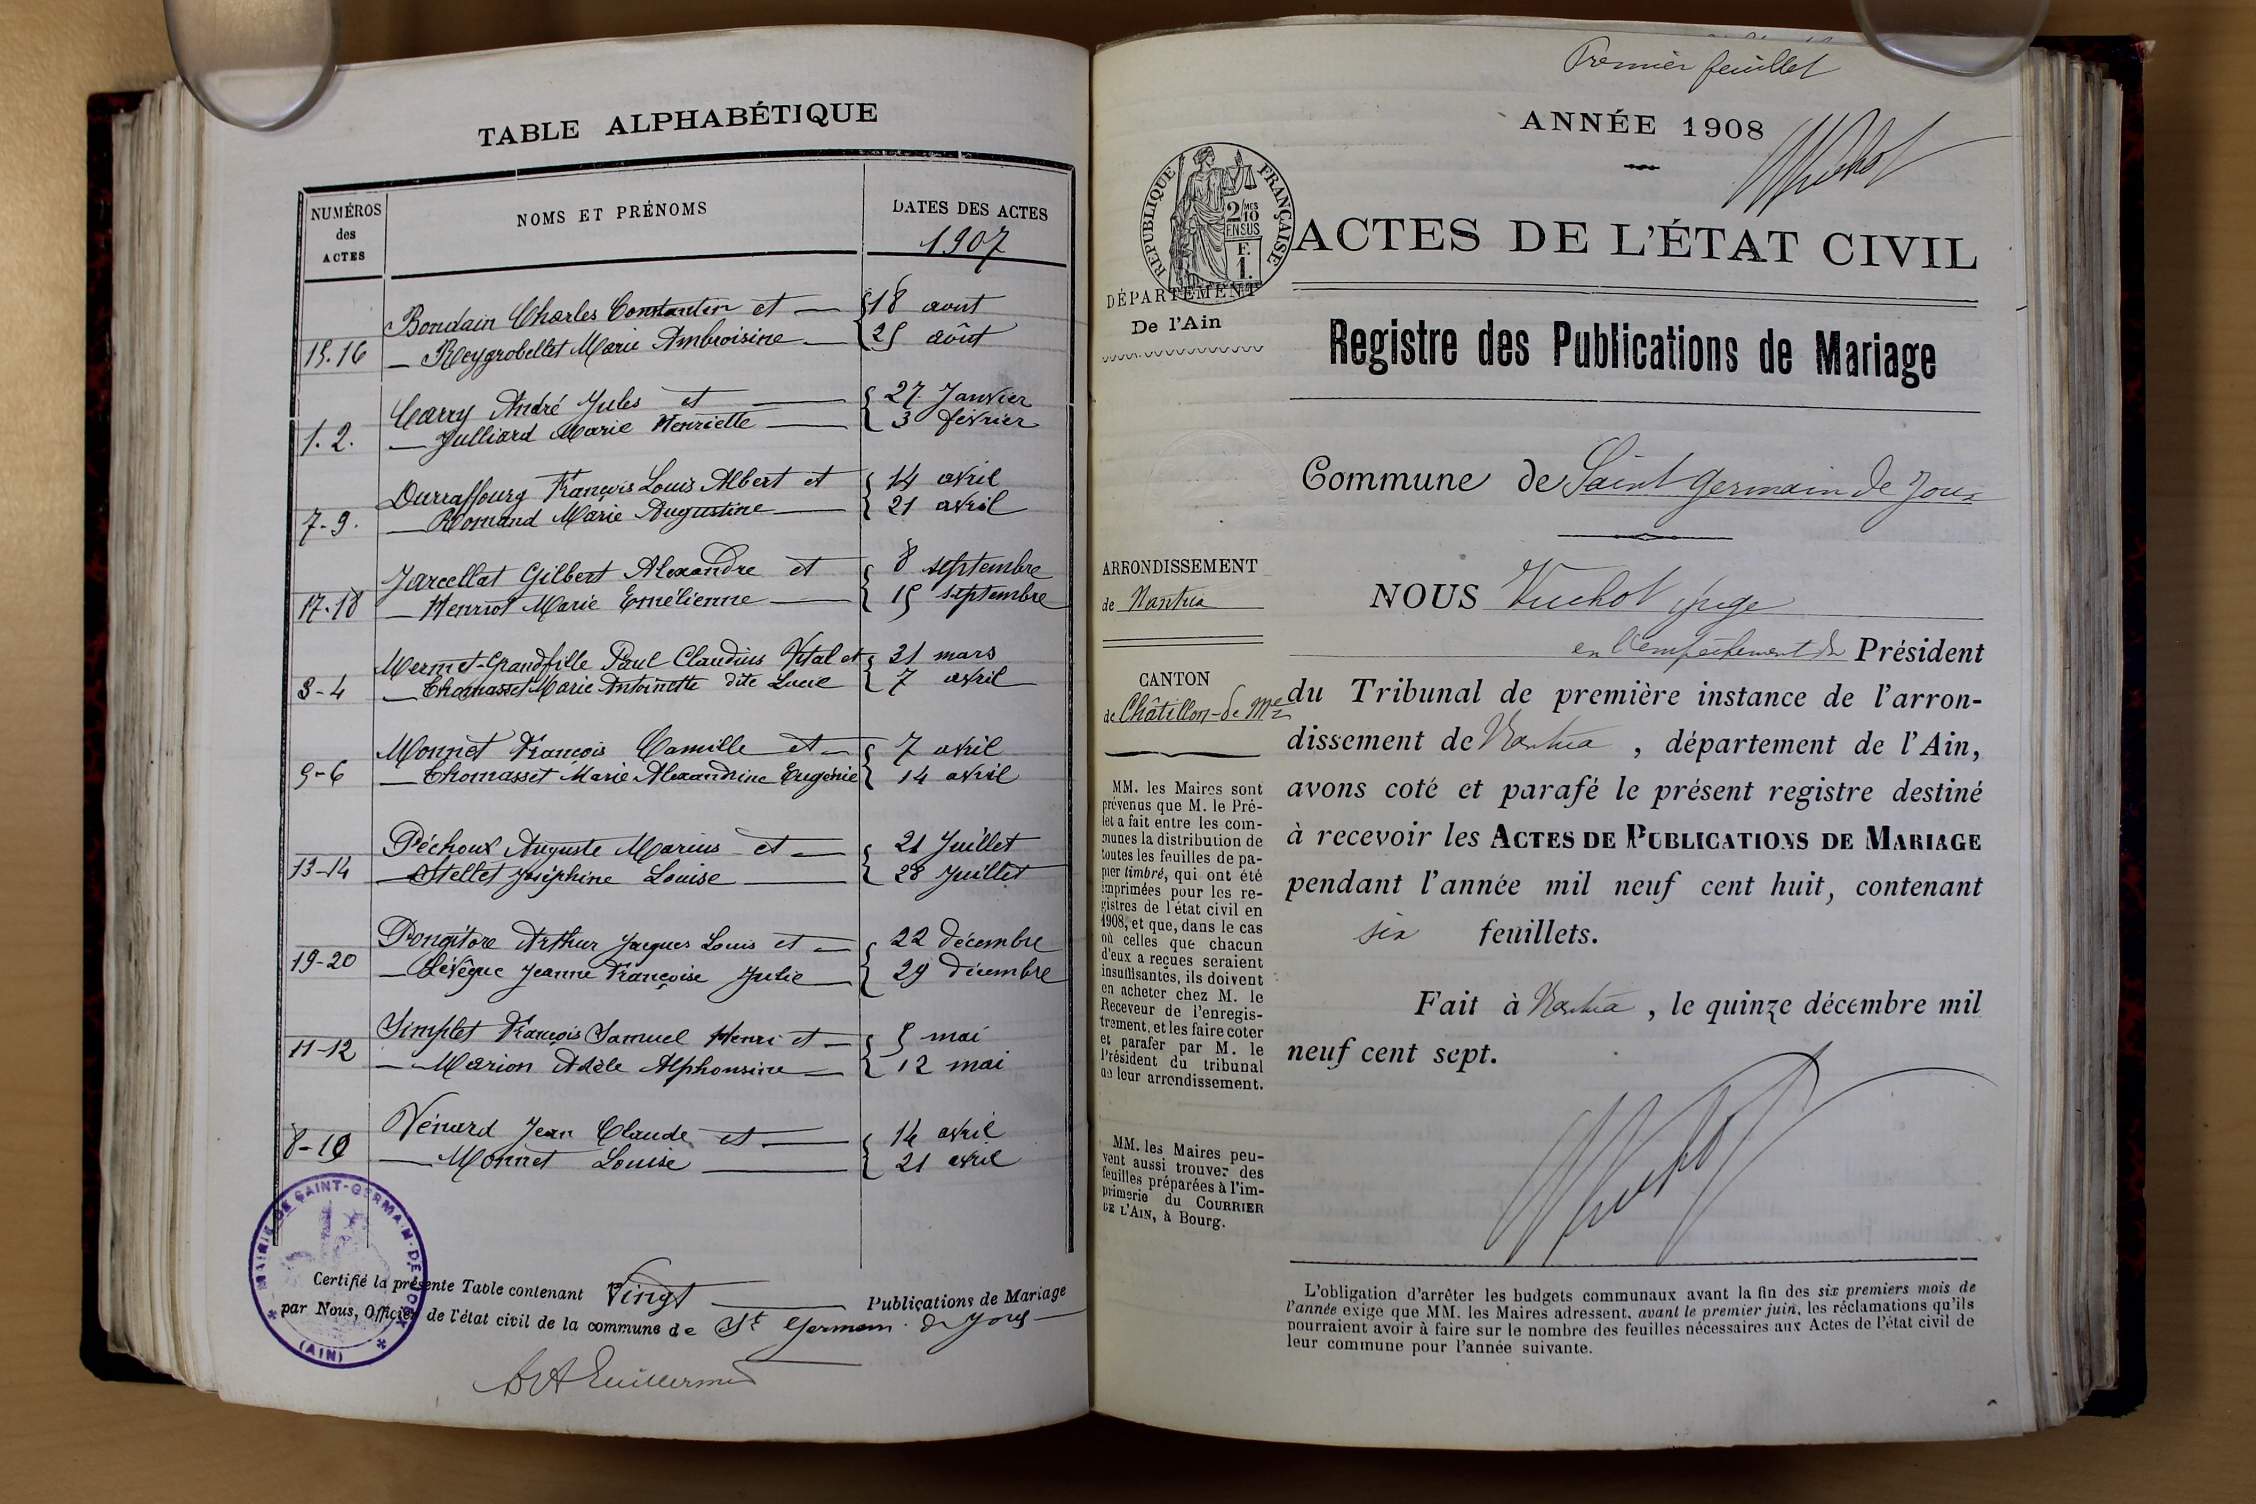 TABLE ALPHABÉTIQUE
NUMÉROS
des
ACTES
NOMS ET PRÉNOMS
DATES DES ACTES
1907
Bondain Charles Constantin et — 18 aout
15.16 — Reygrobellet Marie Ambroisine — 25 août
Carry André Jules et — 27 Janvier
1.2. — Julliard Marie Henriette — 3 février
Durraffourg François Louis Albert et 14 avril
7-9. — Romand Marie Augustine — 21 avril
Jarcellat Gilbert Alexandre et 8 septembre
17.18 — Henriot Marie Emélienne — 15 septembre
Mermet-Grandfille Paul Claudius Vital et 31 mars
3-4 — Thomasset Marie Antoinette dite Lucie 7 avril
Monnet François Camille et — 7 avril
5-6 — Thomasset Marie Alexandrine Eugénie 14 avril
Péchoux Auguste Marius et — 21 Juillet
13-14 — Stellet Joséphine Louise — 28 Juillet
Pongitore Arthur Jacques Louis et — 22 décembre
19-20 — Lévêque Jeanne Françoise Julie — 29 décembre
Simplet François Samuel Henri et — 5 mai
11-12 — Marion Adèle Alphonsine — 12 mai
Vénard Jean Claude et — 14 avril
8-10 — Monnet Louise — 21 avril
MAIRIE DE SAINT-GERMAIN-DE-JOUX
(AIN)
Certifié la présente Table contenant Vingt — Publications de Mariage
par Nous, Officier de l'état civil de la commune de St Germain de Joux
Guillermet
Premier feuillet
ANNÉE 1908
Vuchot
RÉPUBLIQUE FRANÇAISE
2/10 MES
EN SUS
F.
1.
ACTES DE L'ÉTAT CIVIL
DÉPARTEMENT
De l'Ain
Registre des Publications de Mariage
Commune de Saint Germain de Joux
ARRONDISSEMENT
de Nantua
CANTON
de Châtillon-de Mlle
MM. les Maires sont
prévenus que M. le Pré-
fet a fait entre les com-
munes la distribution de
toutes les feuilles de pa-
pier timbré, qui ont été
imprimées pour les re-
gistres de l'état civil en
1908, et que, dans le cas
où celles que chacun
d'eux a reçues seraient
insuffisantes, ils doivent
en acheter chez M. le
Receveur de l'enregis-
trement, et les faire coter
et parafer par M. le
Président du tribunal
de leur arrondissement.
MM. les Maires peu-
vent aussi trouver des
feuilles préparées à l'im-
primerie du COURRIER
DE L'AIN, à Bourg.
NOUS Vuchot juge
en l'empêchement du Président
du Tribunal de première instance de l'arron-
dissement de Nantua, département de l'Ain,
avons coté et parafé le présent registre destiné
à recevoir les ACTES DE PUBLICATIONS DE MARIAGE
pendant l'année mil neuf cent huit, contenant
six feuillets.
Fait à Nantua, le quinze décembre mil
neuf cent sept.
Vuchot
L'obligation d'arrêter les budgets communaux avant la fin des six premiers mois de
l'année exige que MM. les Maires adressent, avant le premier juin, les réclamations qu'ils
pourraient avoir à faire sur le nombre des feuilles nécessaires aux Actes de l'état civil de
leur commune pour l'année suivante.